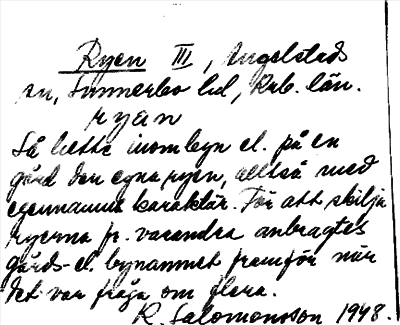 Ryen III, Angelstads
sn, Sunnerbo hd, Krb. län.
ryan
Så hette inom byn el. på en
gård den egna ryen, alltså med
egennamns karaktär. För att skilja
ryerna fr. varandra anbragtes
gårds- el. bynamnet framför när
det var fråga om flera.
R. Salomonsson 1948.